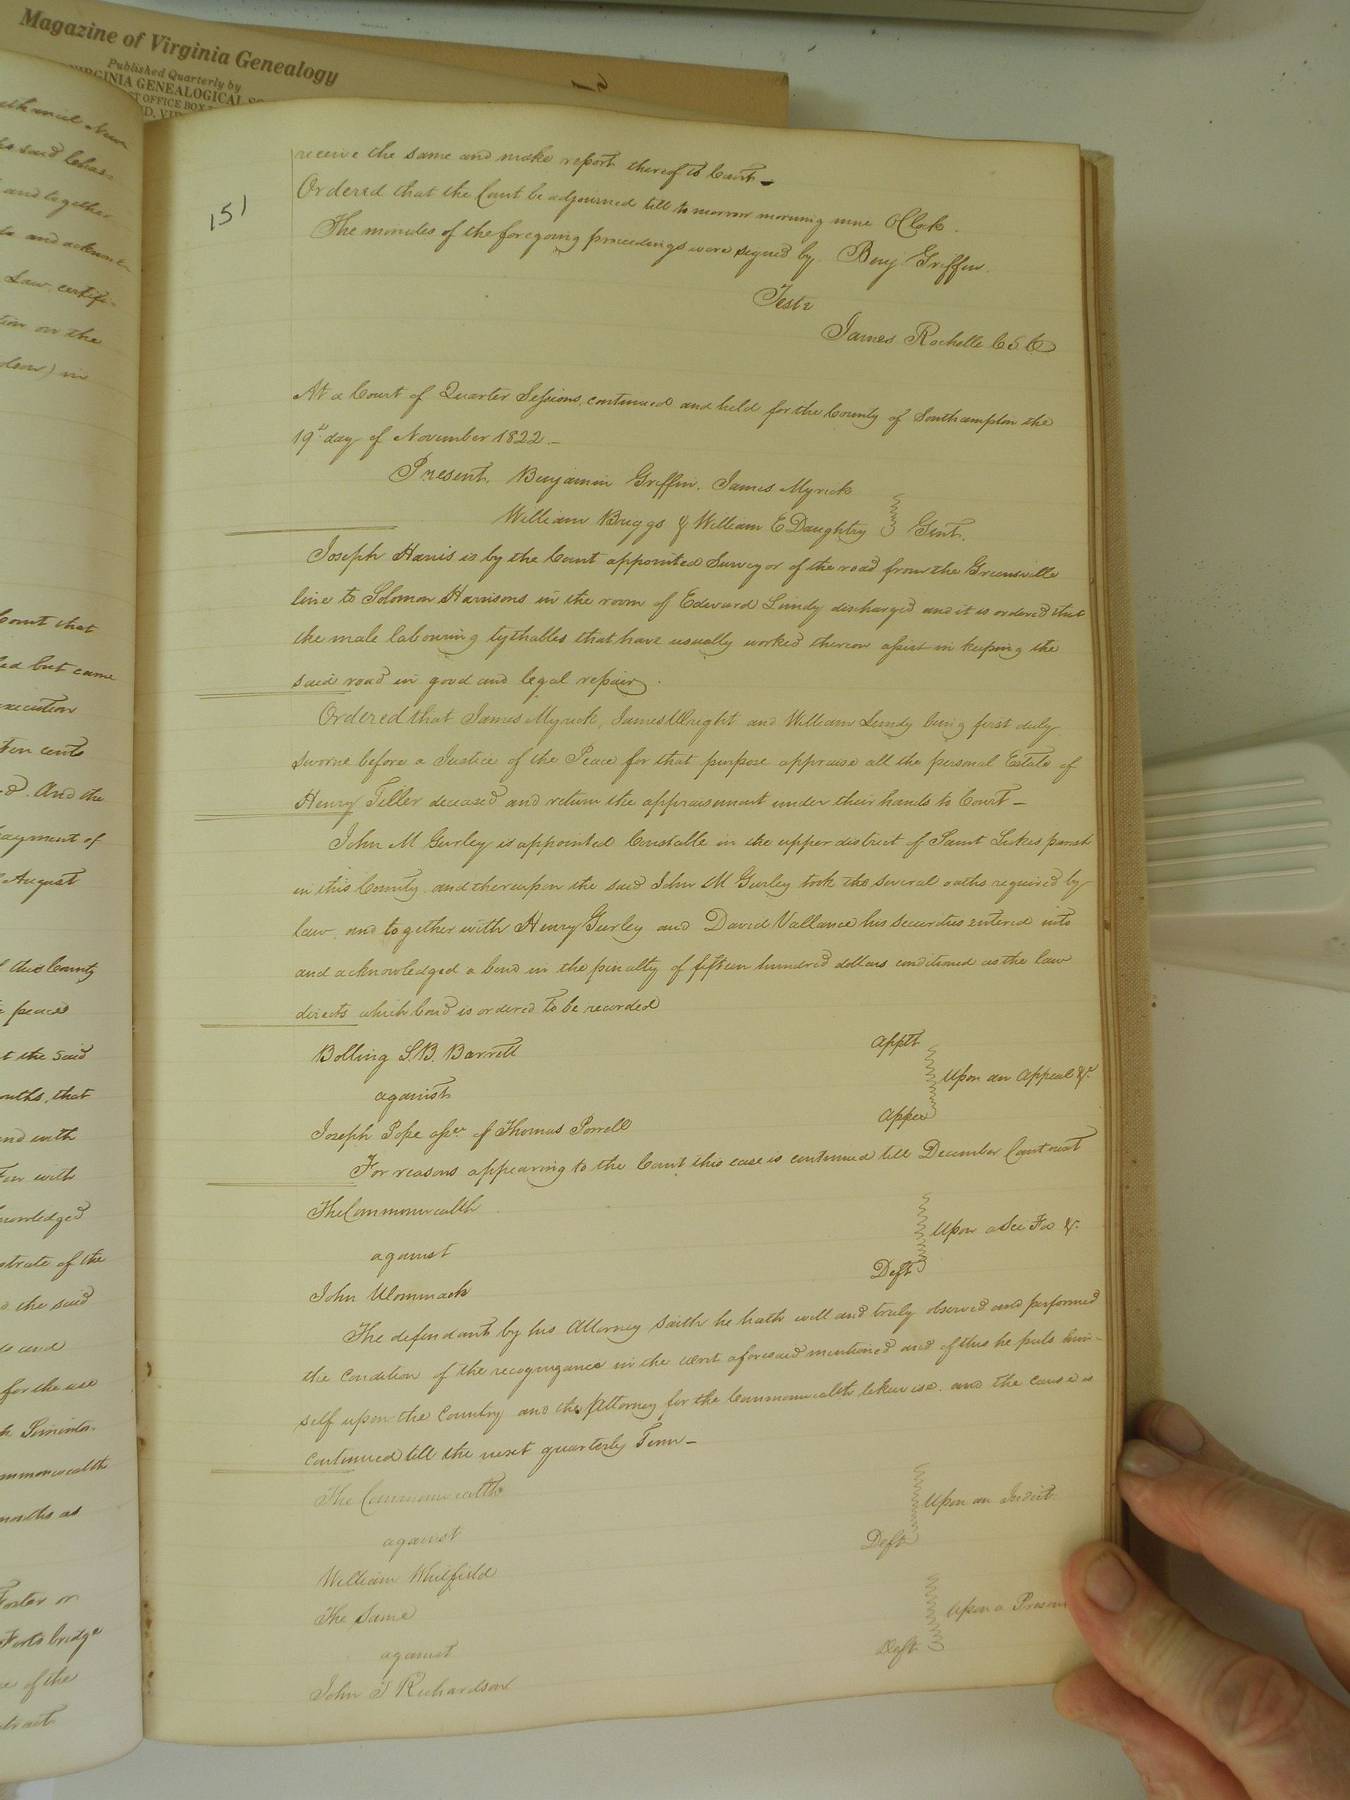 Magazine of Virginia Genealogy
Published Quarterly by
VIRGINIA GENEALOGICAL
POST OFFICE BOX
151
receive the same and make report thereof to Court
Ordered that the Court be adjourned till tomorrow morning nine OClok.
The minutes of the foregoing proceedings were signed by Benj Griffin.
Teste
James Rochelle CSC
At a Court of Quarter Sessions, continued and held for the County of Southampton the
19th day of November 1822.
Present, Benjamin Griffin, James Myrick
William Briggs & William E Daughtry Gent.
Joseph Harris is by the Court appointed Surveyor of the road from the Greensville
line to Solomon Harrisons in the room of Edward Lundy discharged and it is ordered that
the male labouring tythables that have usually worked thereon assist in keeping the
said road in good and legal repair.
Ordered that James Myrick, James Wright and William Lundy being first duly
sworne before a Justice of the Peace for that purpose appraise all the personal Estate of
Henry Teller deceased and return the appraisement under their hands to Court
John M Gurley is appointed Constable in the upper district of Saint Lukes parish
in this County and thereupon the said John M Gurley took the several oaths required by
law, and together with Henry Gurley and David Vallance his securities entered into
and acknowledged a bond in the penalty of fifteen hundred dollars conditioned as the law
directs which bond is ordered to be recorded
Bolling S.B. Barrett Applt
against Upon an Appeal &c.
Joseph Pope assee. of Thomas Porrell Appee
For reasons appearing to the Court this case is continued till December Court next
The Commonwealth
against Upon a Sci Fa &c.
John Wommack Deft
The defendant by his Attorney saith he hath well and truly observed and performed
the condition of the recognizance in the writ aforesaid mentioned and of this he puts him-
self upon the Country and the Attorney for the Commonwealth likewise. and the cause is
continued till the next quarterly Term
The Commonwealth
against Upon an Indict.
William Whitfield Deft
The Same
against Upon a Presen
John T Richardson Deft